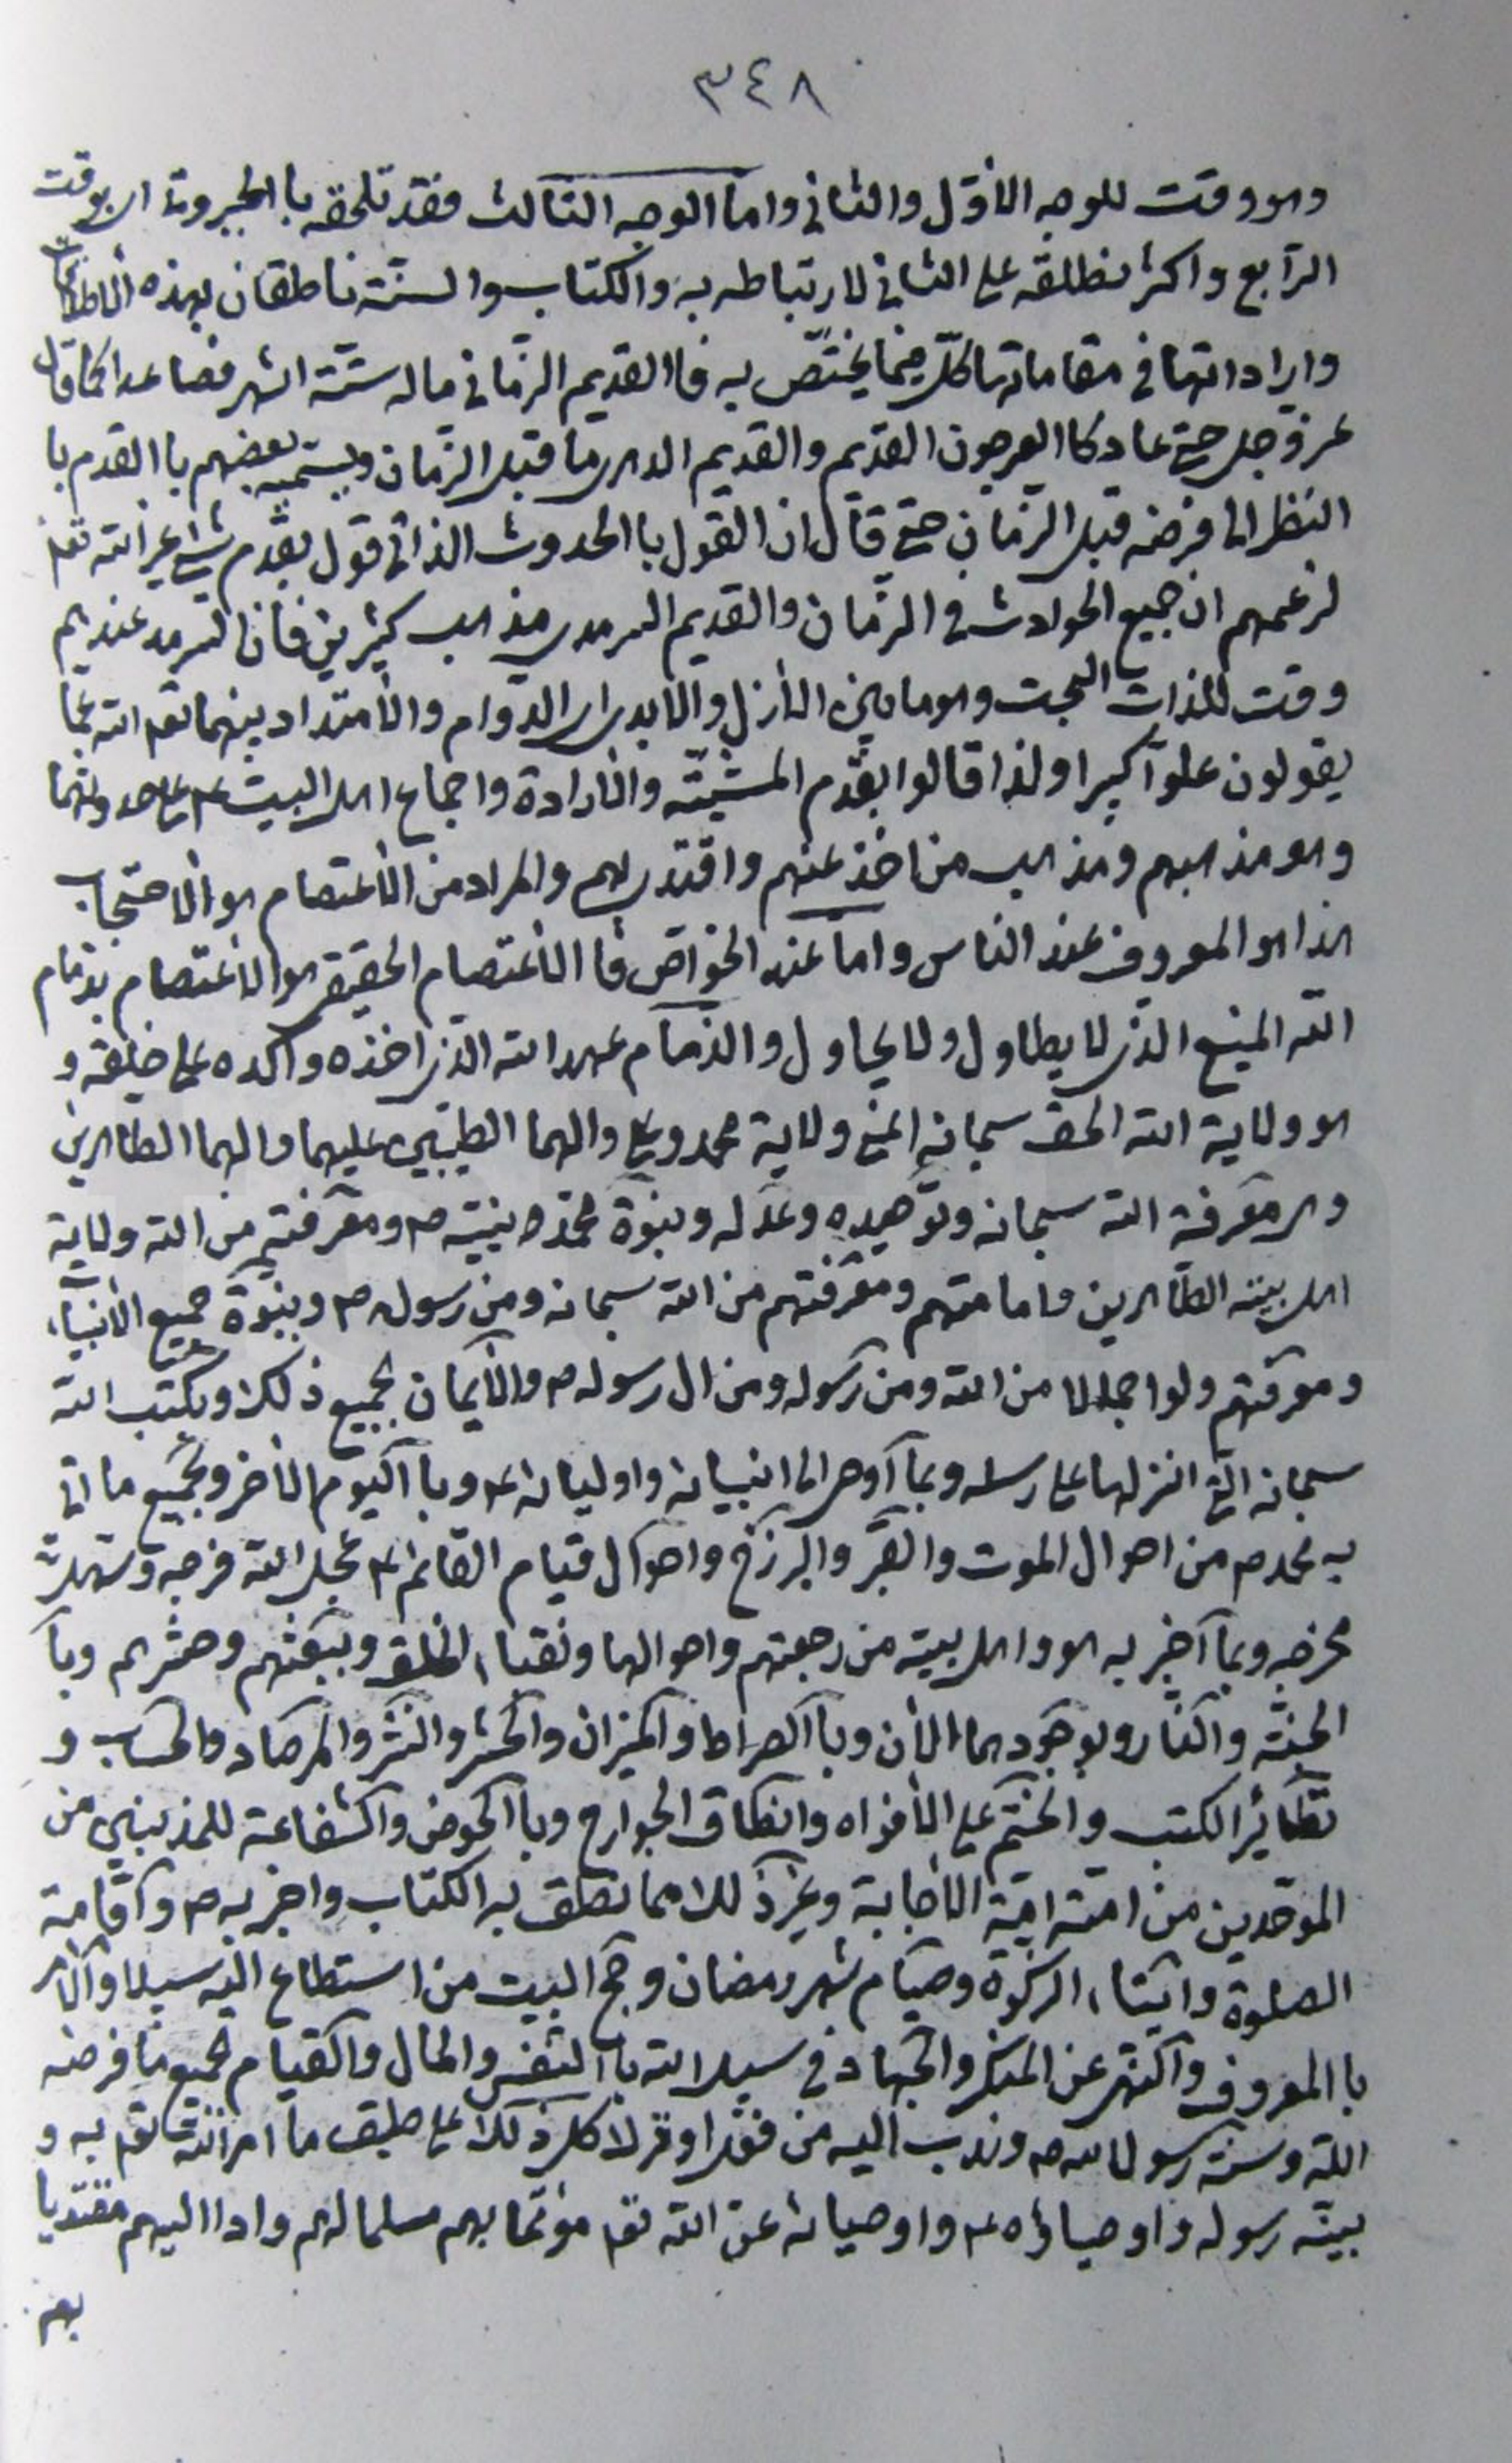 ٣٤٨
وهو وقت للوجه الاوّل والثانی واما الوجه الثالث فقد تلحقه با الجبروت ای بوقت
الرّابع واکثر نطلقه علی الثانی لارتباطه به والکتاب والسنّة ناطقان بهذه الاطلاقات
وایراداتها فی مقاماتها کلّ فیما یختصّ به فا القدیم الزمانی ماله ستّة اشهر فصاعدا کما قال
عز وجل حتی عاد کا العرجون القدیم والقدیم الدهری ما قبل الزمان ویسمّیه بعضهم با القدم با
النظر الی فرضه قبل الزمان حتی قال ان القول با الحدوث الذاتی قول بقدم شیء غیر الله تعـ
لزعمهم ان جمیع الحوادث فی الزمان والقدیم السرمدی مذهب کثیرین فان السرمد عندهم
وقت للذات البحت وهو ما بین الأزل والأبد ای الدّوام والأمتداد بینهما تعـ الله عمّا
یقولون علوّا کبیرا ولذا قالوا بقدم المشیّة والأرادة واجماع اهل البیت ع علی حدوثهما
وهو مذهبهم ومذهب من اخذ عنهم واقتدی بهم والمراد من الأعتصام هو الأحتجاب
هذا هو المعروف عند الناس واما عند الخوّاص فا الأعتصام الحقیقی هو الأعتصام بذمام
الله المنیع الذی لا یطاول ولا یحاول والذمام عهد الله الذی اخذه واکده علی خلیقه و
هو ولایة الله الحق سبحانه اعنی ولایة محمد وعلی والهما الطیبین علیهما والهما الطاهرین
وهی معرفة الله سبحانه وتوحیده وعدله وبنبوة محمد نبیّه ص ومعرفته من الله ولایة
اهل بیته الطّاهرین وامامتهم ومعرفتهم من الله سبحانه ومن رسوله ص وبنبوّة جمیع الأنبیآء
ومعرفتهم ولو اجمالا من الله ومن رسوله ومن ال رسوله ص والأیمان بجمیع ذلک وبکتب الله
سبحانه التی انزلها علی رسله وبما اوحی الی انبیائه واولیائه ع وبا الیوم الأخر وبجمیع ما اتی
به محمد ص من احوال الموت والقبر والبرزخ واحوال قیام القائم ع عجل الله فرجه وسهل
مخرجه وبما اخبر به هو واهل بیته من رجعتهم واحوالها وبفناء الخلق وببعثهم وحشرهم وبا
الجنّة والنّار وبوجودهما الأن وبا الصراط والمیزان والحشر والنشر والمرصاد والحساب و
تطائر الکتب والختم علی الأفواه وانطاق الجوارح وبا الحوض والشفاعة للمذنبین من
الموحّدین من امّته امّة الأجابة وغیر ذلک مما نطق به الکتاب واخبر به ص واقامة
الصلوة وایتاء الزکوة وصیام شهر رمضان وحج البیت من استطاع الیه سبیلا والأمر
با المعروف والنهی عن المنکر والجهاد فی سبیل الله با النفس والمال والقیام بجمیع ما فرضه
الله وسنّه رسول الله ص وندب الیه من فعل او ترک کل ذلک علی طبق ما امر الله تعـ به و
بیّنه رسوله واوصیاؤه ع واوصیائه عن الله تعـ مؤتمّا بهم مسلما لهم وادا الیهم مقتدیا
بهم